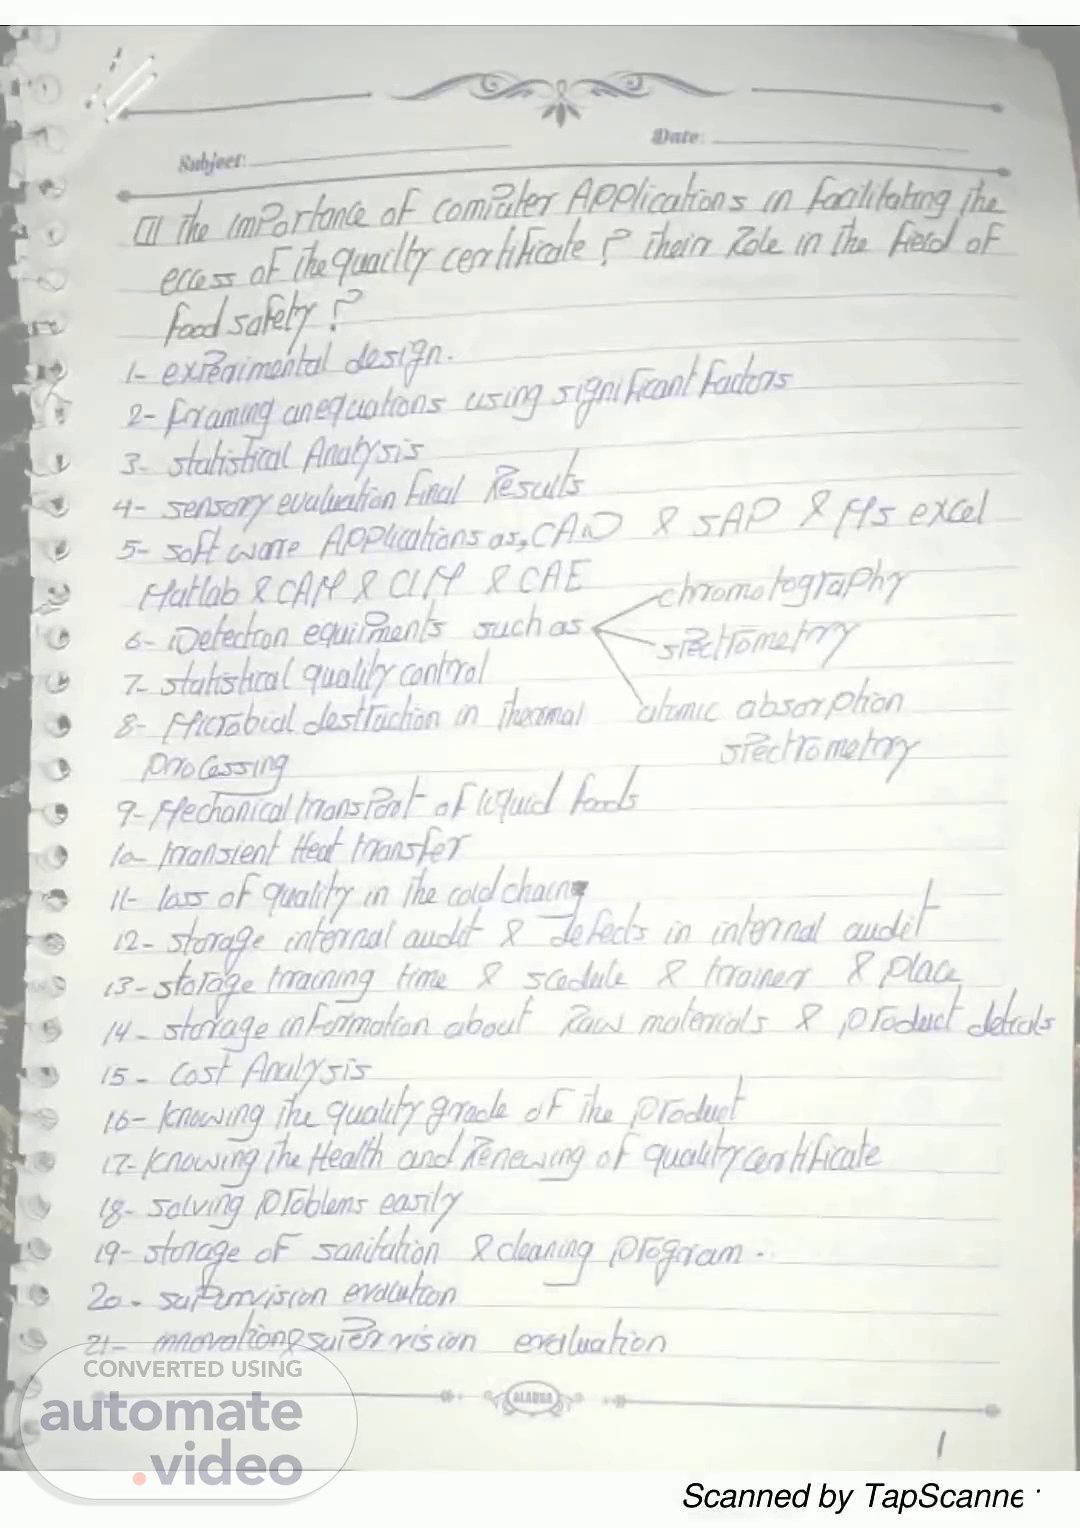 Subject:
Date:
[1] The importance of computer Applications in facilitating the
eccess of the quailty certificate? their Role in the field of
food safety?
1- experimental design.
2- framing an equations using significant factors
3- statistical Analysis
4- sensory evaluation final Results
5- soft ware Applications as, CAD & SAP & Ms excel
Matlab & CAM & CIM & CAE
chromotography
6- Detection equipments such as
spectrometry
7- statistical quality control
8- Microbial destraction in thermal
atomic absorption
processing
spectrometry
9- Mechanical transport of liquid foods
10- transient Heat transfer
11- loss of quality in the cold chain
12- storage internal audit & defects in internal audit
13- storage training time & scedule & trainer & place
14- storage information about Raw materials & product details
15- Cost Analysis
16- Knowing the quality grade of the product
17- Knowing the Health and Renewing of quality certificate
18- solving problems easily
19- storage of sanitation & cleaning program.
20- supervision
21- innovation & supervision evaluation
ALADNA
1
CONVERTED USING
automate
.video
Scanned by TapScanne